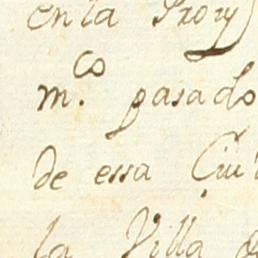 en la Prov
m.co pasado
de essa Ciu
la Villa